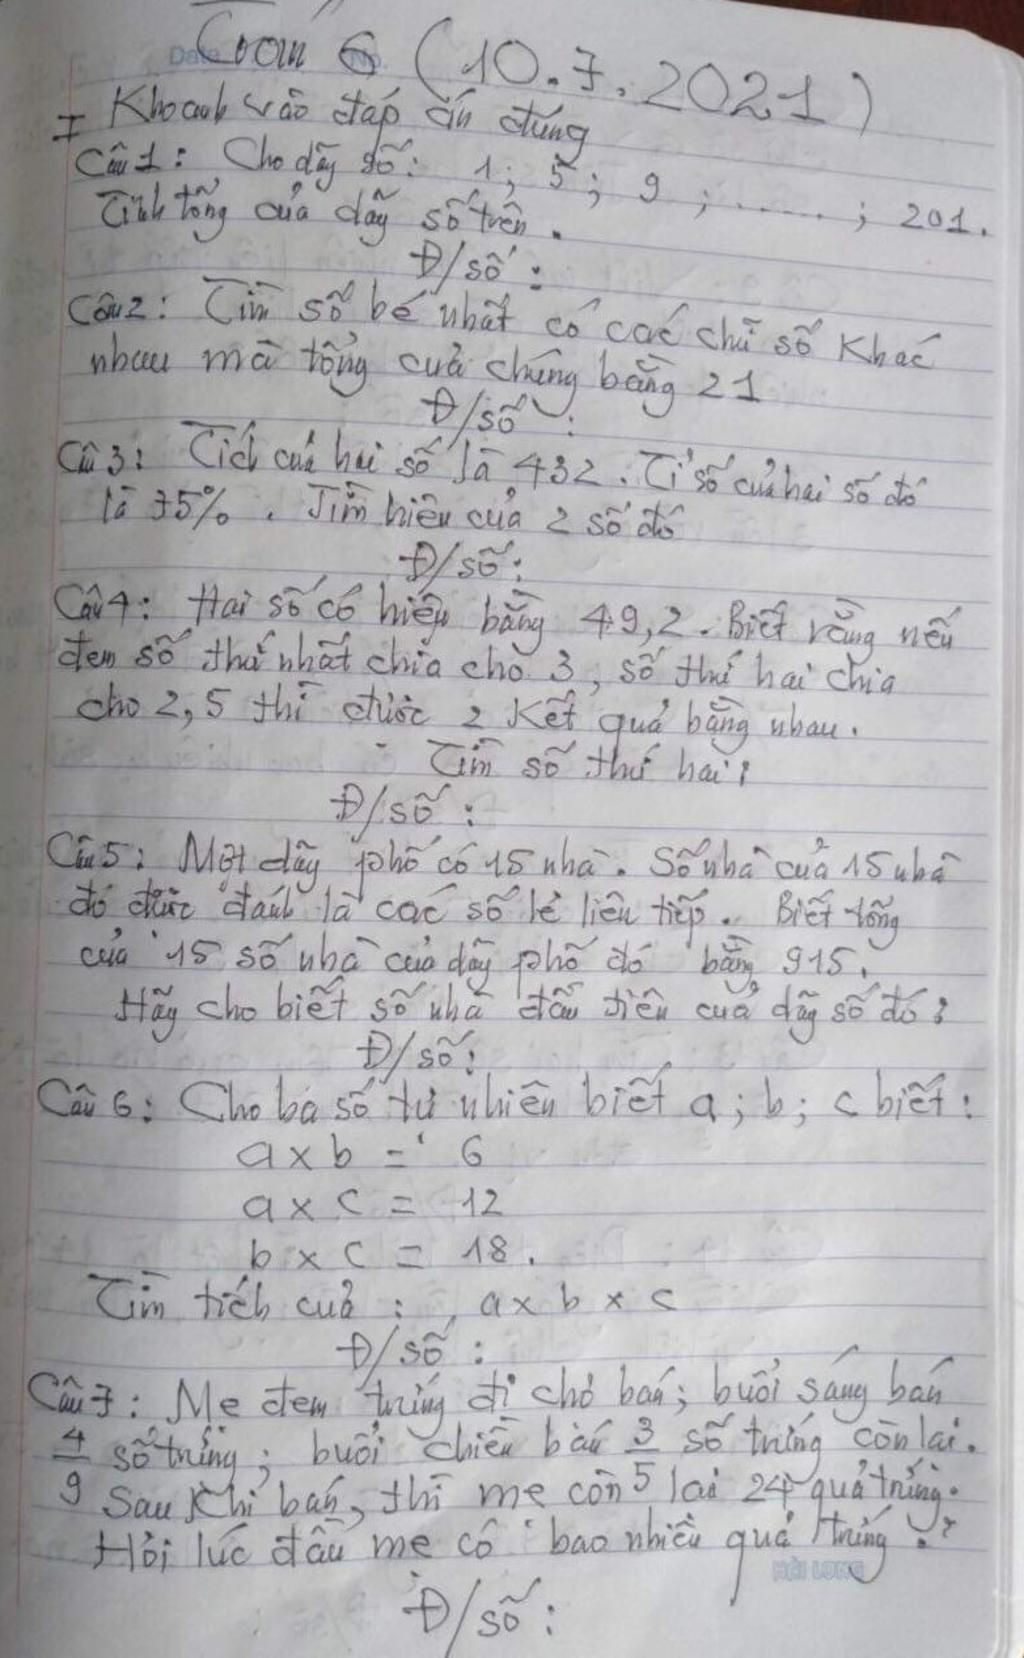 Toán 6 (10.7.2021)
I Khoanh vào đáp án đúng
Câu 1: Cho dãy số: 1; 5; 9; ......; 201.
Tính tổng của dãy số trên.
Đ/số:
Câu 2: Tìm số bé nhất có các chữ số khác
nhau mà tổng của chúng bằng 21
Đ/số:
Câu 3: Tích của hai số là 432. Tỉ số của hai số đó
là 75%. Tìm hiệu của 2 số đó
Đ/số:
Câu 4: Hai số có hiệu bằng 49,2. Biết rằng nếu
đem số thứ nhất chia cho 3, số thứ hai chia
cho 2,5 thì được 2 kết quả bằng nhau.
Tìm số thứ hai?
Đ/số:
Câu 5: Một dãy phố có 15 nhà. Số nhà của 15 nhà
đó được đánh là các số lẻ liên tiếp. Biết tổng
của 15 số nhà của dãy phố đó bằng 915.
Hãy cho biết số nhà đầu tiên của dãy số đó?
Đ/số:
Câu 6: Cho ba số tự nhiên biết a; b; c biết:
a x b = 6
a x c = 12
b x c = 18.
Tìm tích của: a x b x c
Đ/số:
Câu 7: Mẹ đem trứng đi chợ bán; buổi sáng bán
4/9 số trứng; buổi chiều bán 3/5 số trứng còn lại.
Sau khi bán, thì mẹ còn lại 24 quả trứng.
Hỏi lúc đầu mẹ có bao nhiêu quả trứng?
HẢI LONG
Đ/số: